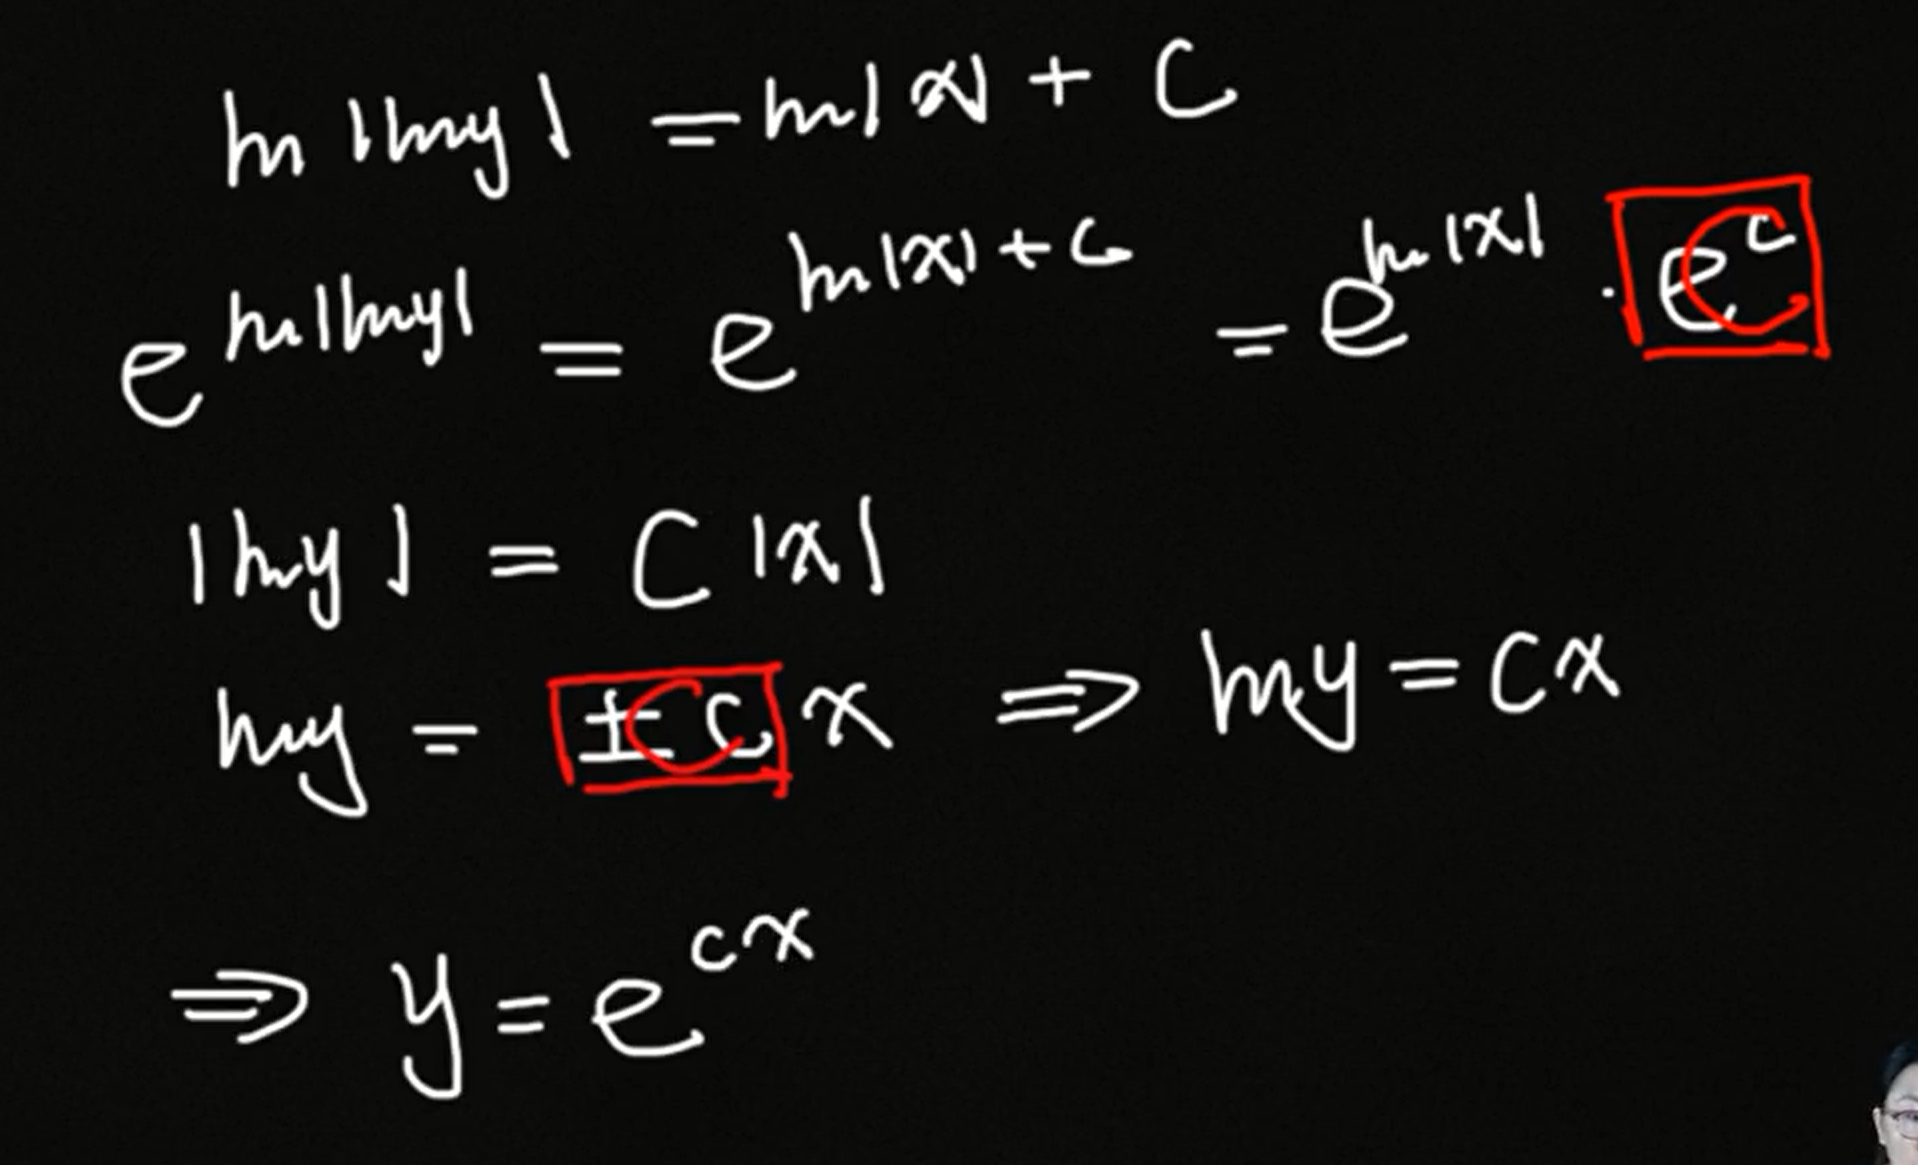 ln |lny| = ln|x| + C
e^{ln|lny|} = e^{ln|x|+C} = e^{ln|x|} · e^C C
|lny| = C|x|
lny = ±C C x ⇒ lny = Cx
⇒ y = e^{Cx}